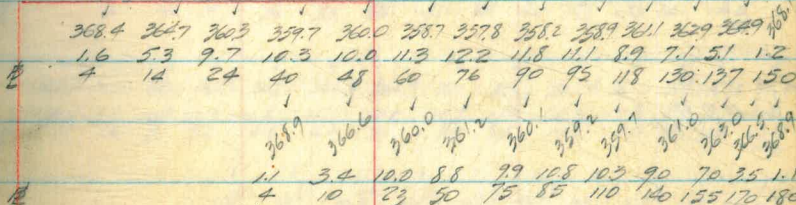 368.4 364.7 360.3 359.7 360.0 358.7 357.8 358.2 358.9 361.1 362.9 364.9 368.
1.6 5.3 9.7 10.3 10.0 11.3 12.2 11.8 11.1 8.9 7.1 5.1 1.2
4 14 24 40 48 60 76 90 95 118 130 137 150
368.9 366.6 360.0 361.2 360.1 359.2 359.7 361.0 363.0 366.5 368.9
1.1 3.4 10.0 8.8 9.9 10.8 10.3 9.0 7.0 3.5 1.1
4 10 23 50 75 85 110 140 155 170 180